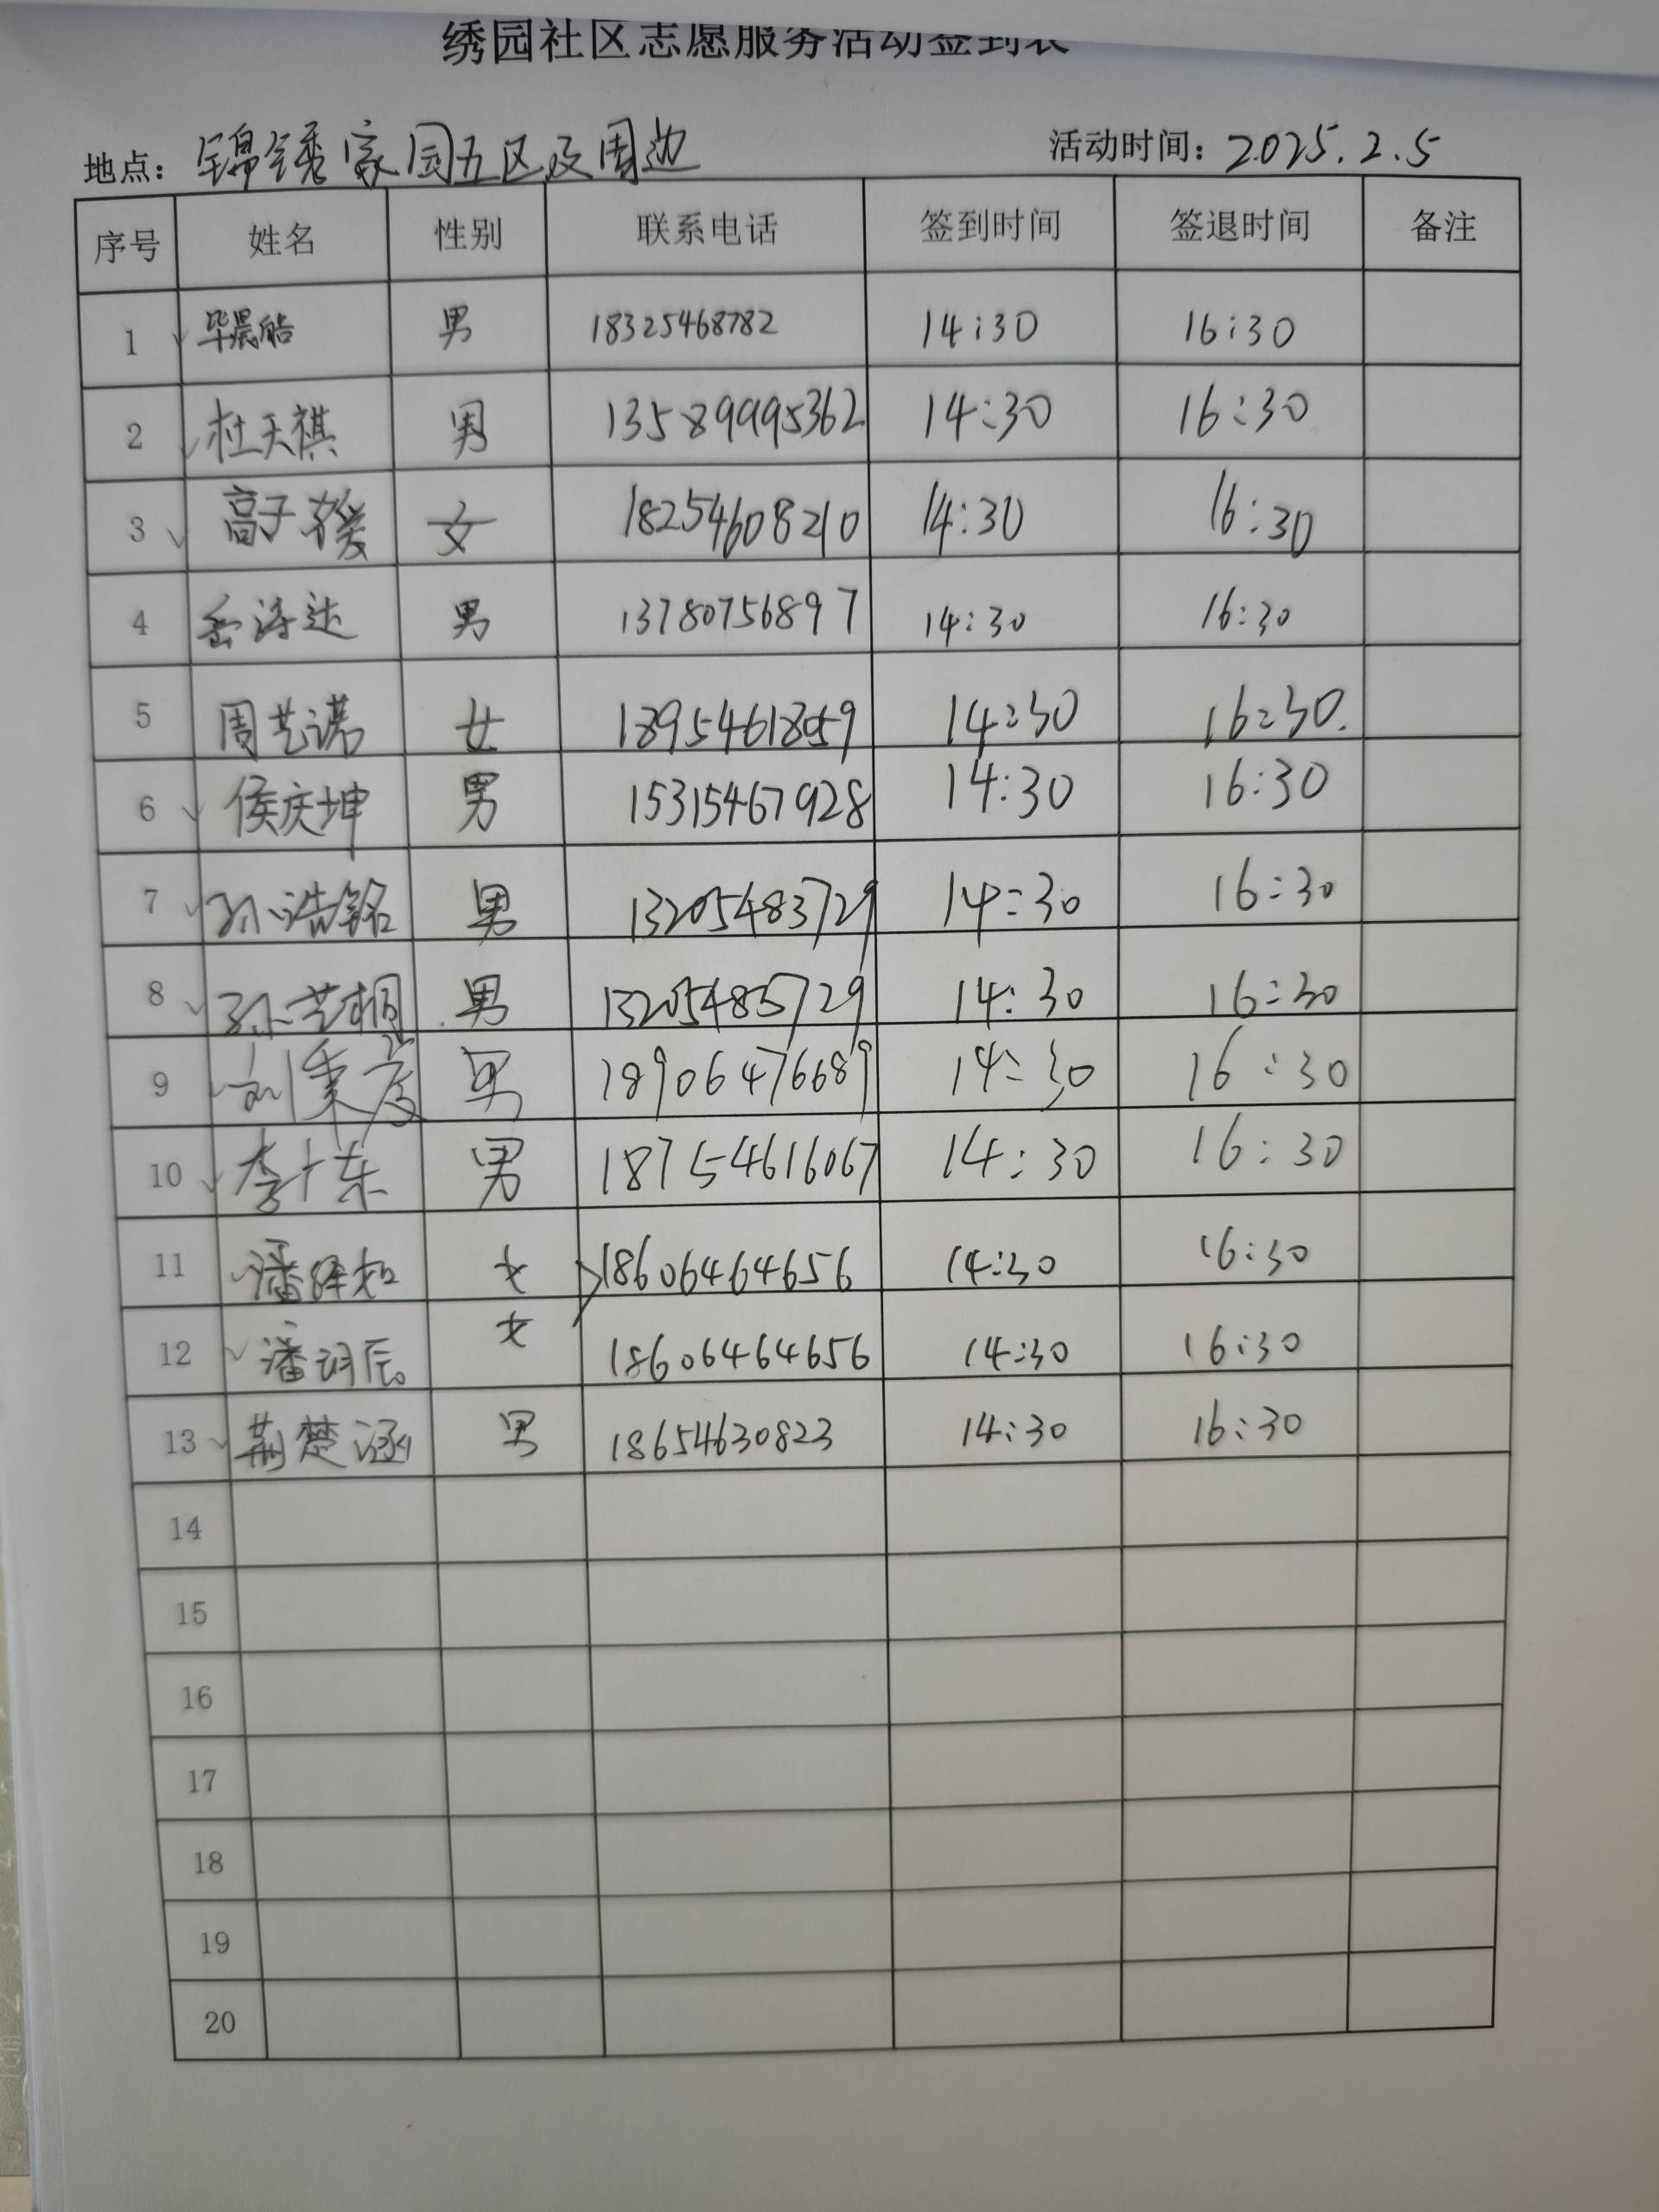 绣园社区志愿服务活动签到表
地点：锦锈家园五区及周边 活动时间：2025.2.5
序号 姓名 性别 联系电话 签到时间 签退时间 备注
1 毕晨皓 男 18325468782 14:30 16:30
2 杜天祺 男 13589995362 14:30 16:30
3 高子媛 女 18254608210 14:30 16:30
4 岳涛达 男 13780756897 14:30 16:30
5 周艺诺 女 18954618059 14:30 16:30.
6 侯庆坤 男 15315467928 14:30 16:30
7 孙浩铭 男 13205483729 14:30 16:30
8 孙艺桐 男 13205483729 14:30 16:30
9 刘秉彦 男 18906476689 14:30 16:30
10 李十东 男 18754616067 14:30 16:30
11 潘绎如 女 18606464656 14:30 16:30
12 潘玥辰 女 18606464656 14:30 16:30
13 荆楚涵 男 18654630823 14:30 16:30
14
15
16
17
18
19
20